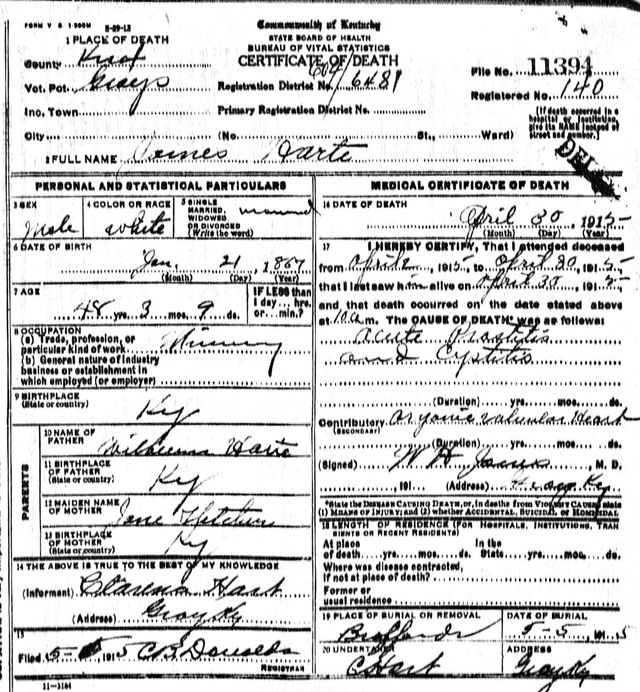 FORM V S 1-500M 8-29-12
Commonwealth of Kentucky
STATE BOARD OF HEALTH
BUREAU OF VITAL STATISTICS
CERTIFICATE OF DEATH
1 PLACE OF DEATH
County Knox
Vot. Pct. Grays
Inc. Town
City (No. St., Ward)
Registration District No. 604/6481
Primary Registration District No.
File No. 11394
Registered No. 140
(If death occurred in a hospital or institution, give its NAME instead of street and number.)
2 FULL NAME James Harte
PERSONAL AND STATISTICAL PARTICULARS
3 SEX
Male
4 COLOR OR RACE
White
5 SINGLE MARRIED, WIDOWED OR DIVORCED (Write the word)
Married
6 DATE OF BIRTH
Jan 21, 1867
(Month) (Day) (Year)
7 AGE
48 yrs. 3 mos. 9 ds.
IF LESS than 1 day... hrs. or min.?
8 OCCUPATION
(a) Trade, profession, or particular kind of work
(b) General nature of industry business or establishment in which employed (or employer)
9 BIRTHPLACE (State or country)
Ky
PARENTS
10 NAME OF FATHER
Harte
11 BIRTHPLACE OF FATHER (State or country)
Ky
12 MAIDEN NAME OF MOTHER
Jane
13 BIRTHPLACE OF MOTHER (State or country)
Ky
14 THE ABOVE IS TRUE TO THE BEST OF MY KNOWLEDGE
(Informant) Hart
(Address) Gray Ky
15
Filed 5- 1915 C B Donaldson
REGISTRAR
11-3184
MEDICAL CERTIFICATE OF DEATH
16 DATE OF DEATH
April 30, 1915
(Month) (Day) (Year)
17 I HEREBY CERTIFY, That I attended deceased
from April 2, 1915 to April 30 1915
that I last saw him alive on April 30 1915
and that death occurred on the date stated above
at 10 a m. The CAUSE OF DEATH* was as follows:
Acute
and Cystitis
(Duration) yrs. mos. ds.
Contributory Organic Valvular Heart
(SECONDARY)
(Duration) yrs. mos. ds.
(Signed) W H , M. D.
, 191 (Address) Gray Ky
*State the DISEASE CAUSING DEATH, or, in deaths from VIOLENT CAUSES state (1) MEANS OF INJURY; and (2) whether ACCIDENTAL, SUICIDAL or HOMICIDAL
18 LENGTH OF RESIDENCE (FOR HOSPITALS, INSTITUTIONS, TRANSIENTS OR RECENT RESIDENTS)
At place of death yrs. mos. ds. In the State yrs. mos. ds.
Where was disease contracted,
If not at place of death?
Former or usual residence
19 PLACE OF BURIAL OR REMOVAL
DATE OF BURIAL
5-5 1915
20 UNDERTAKER
C Hart
ADDRESS
Gray Ky